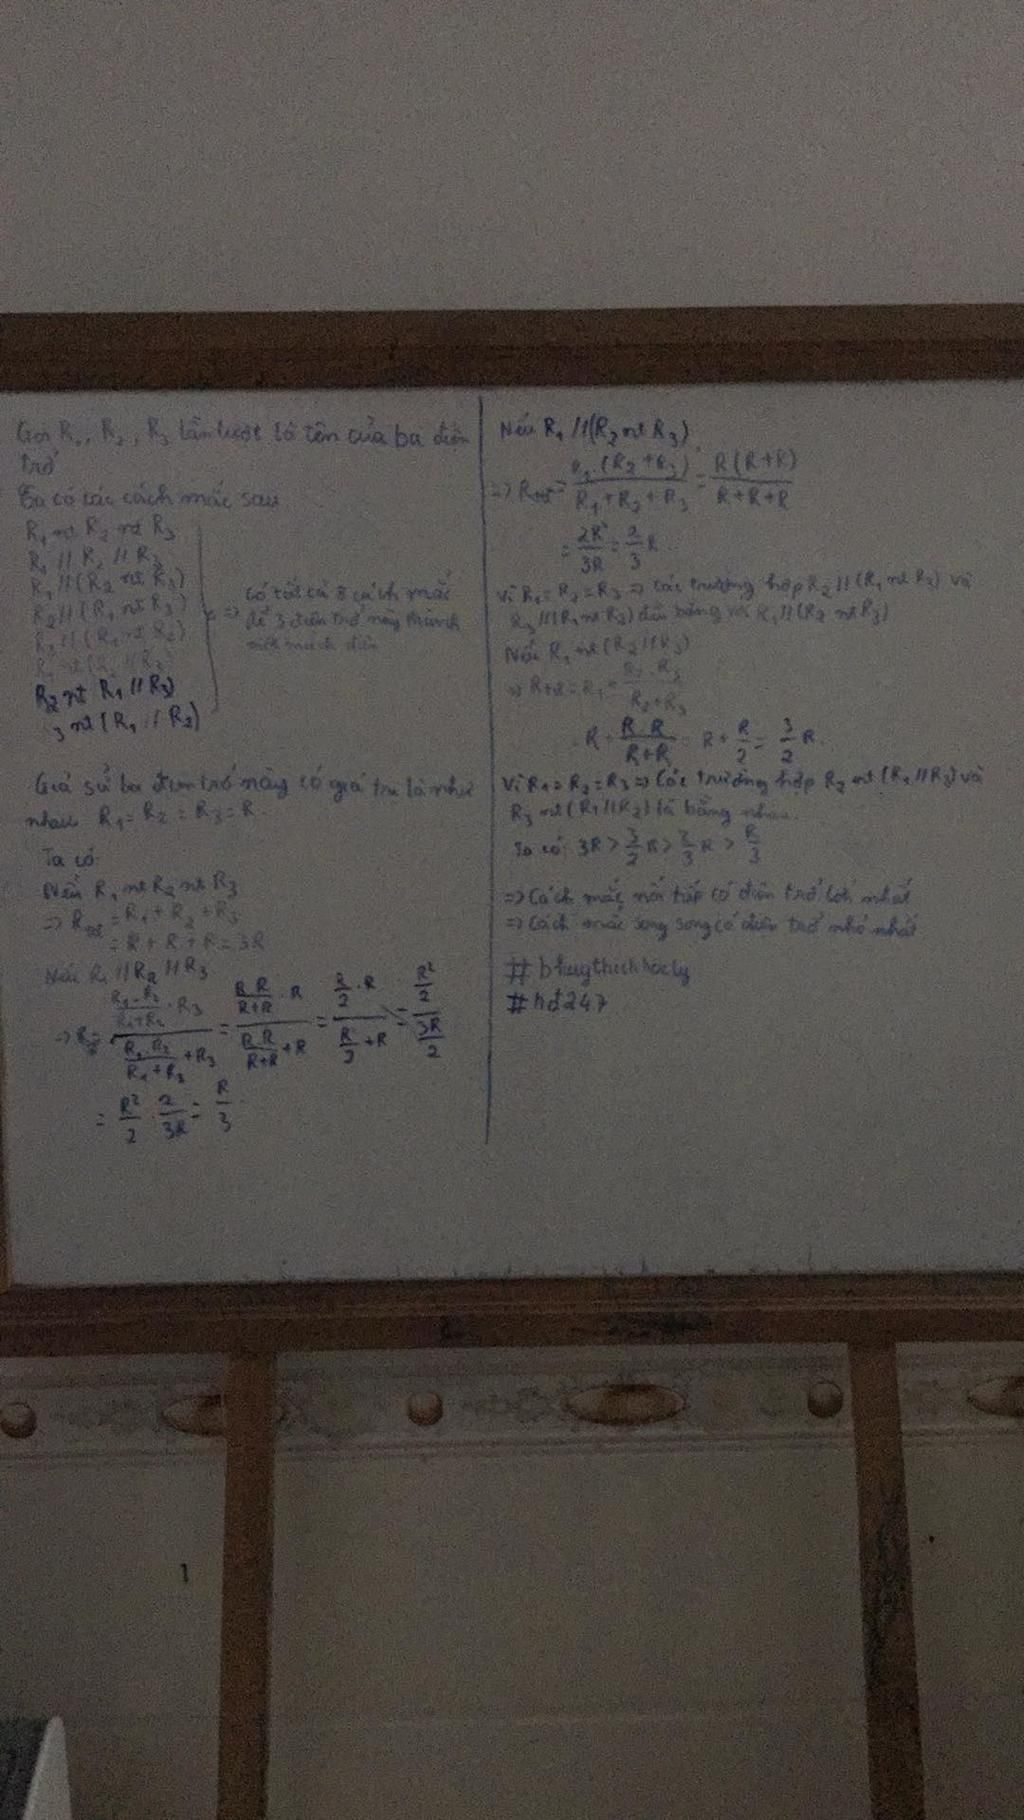 Gọi R₁, R₂, R₃ lần lượt là tên của ba điện
trở
Ta có các cách mắc sau
R₁ nt R₂ nt R₃
R₁ // R₂ // R₃
R₁ // (R₂ nt R₃)
R₂ // (R₁ nt R₃)
R₃ // (R₁ nt R₂)
R₁ nt (R₂ // R₃)
R₂ nt R₁ // R₃)
3 nt (R₁ // R₂)
=> Có tất cả 8 cách mắc
để 3 điện trở này thành
một mạch điện
Giả sử ba điện trở này có giá trị là như
nhau R₁ = R₂ = R₃ = R.
Ta có
Nếu R₁ nt R₂ nt R₃
=> R = R₁ + R₂ + R₃
= R + R + R = 3R
Nếu R₁ // R₂ // R₃
=> R = ((R₁.R₂)/(R₁+R₂) . R₃)/((R₁.R₂)/(R₁+R₃) + R₃) = ((R.R)/(R+R) . R)/((R.R)/(R+R) + R) = (R/2 . R)/(R/2 + R) = (R²/2)/(3R/2)
= R²/2 . 2/3R = R/3.
Nếu R₁ // (R₂ nt R₃)
=> R = (R₁.(R₂+R₃))/(R₁+R₂+R₃) = R(R+R)/(R+R+R)
= 2R²/3R = 2/3 R
Vì R₁ = R₂ = R₃ => Các trường hợp R₂ // (R₁ nt R₃) và
R₃ // (R₁ nt R₂) đều bằng với R₁ // (R₂ nt R₃)
Nếu R₁ nt (R₂ // R₃)
=> R = R₁ = (R₂.R₃)/(R₂+R₃)
= R + (R.R)/(R+R) = R + R/2 = 3/2 R.
Vì R₁ = R₂ = R₃ => Các trường hợp R₂ nt (R₁ // R₃) và
R₃ nt (R₁ // R₂) là bằng nhau.
Ta có: 3R > 3/2 R > 2/3 R > R/3
=> Cách mắc nối tiếp có điện trở lớn nhất
=> Cách mắc song song có điện trở nhỏ nhất